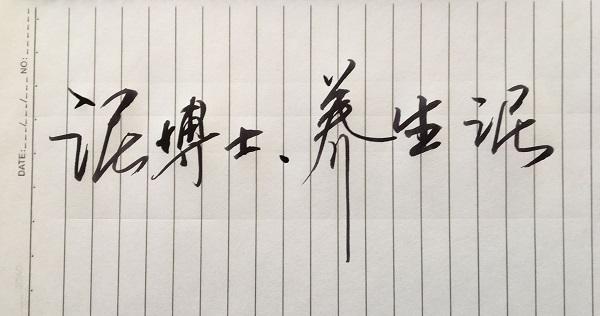 泥博士、养生泥
DATE:___/___/___ NO:______